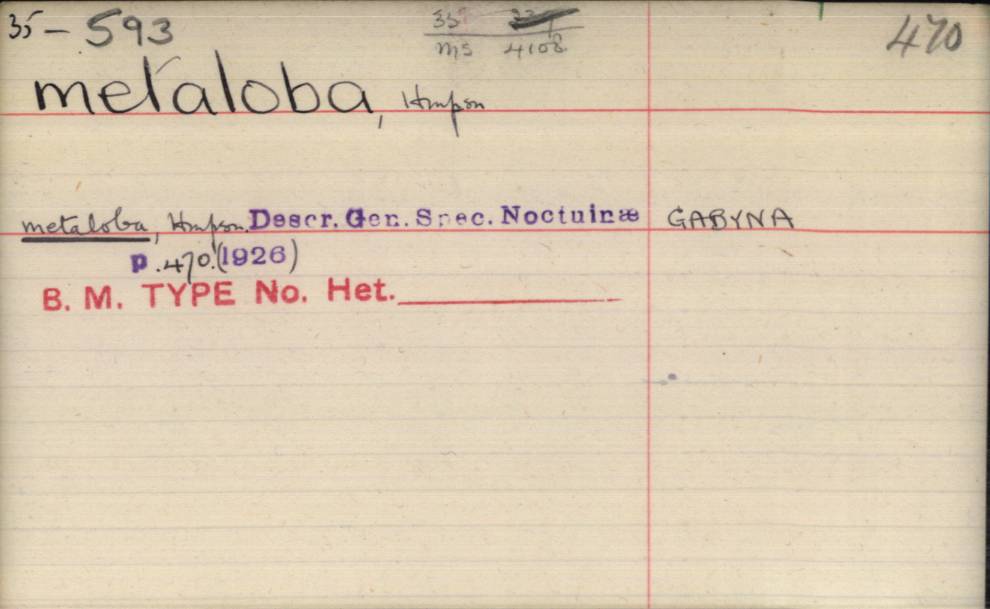 35-593
470
MS 4108
metaloba, Hmpsn
metaloba, Hmpsn. Descr. Gen. Spec. Noctuinæ GABYNA
p. 470. (1926)
B. M. TYPE No. Het.